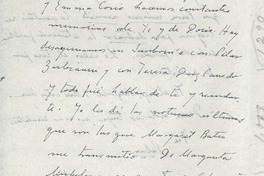 y Emma Cosío hacemos constantes
memorias de Ti y de Doris. Hoy
desayunamos en Sanborn's con Pilar
y con Teresa Díaz Canedo
y todo fué hablar de ti y recordar
Yo les di las noticias últimas
que en las que Margaret Bates
me transmitió. De Marguita